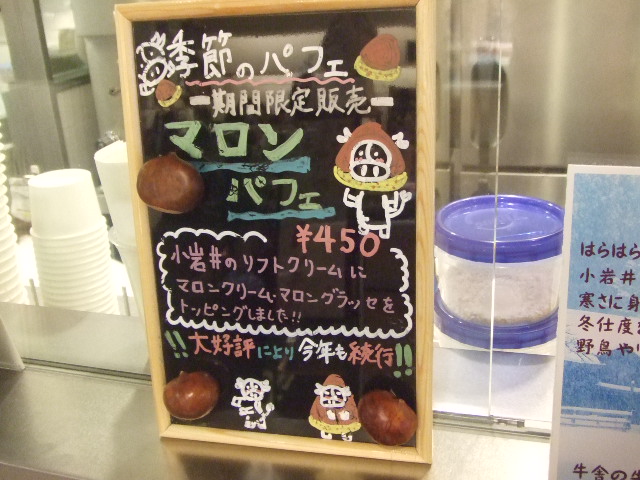 季節のパフェ
ー期間限定販売ー
マロン
パフェ
¥450
小岩井のソフトクリームに
マロンクリーム・マロングラッセを
トッピングしました!!
!!大好評により今年も続行!!
はらはら
小岩井
寒さに身
冬仕度
野鳥や
牛舎の牛